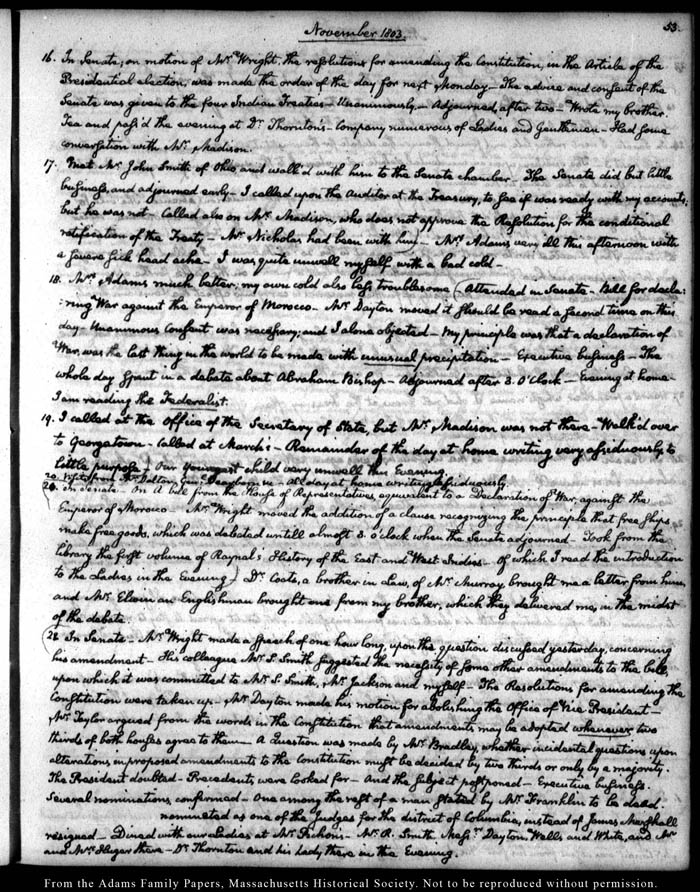 November 1803.
53.
16. In Senate; on motion of Mr. Wright, the resolutions for amending the Constitution, in the Article of the
Presidential election, was made the order of the day for next Monday— The advice and consent of the
Senate was given to the four Indian Treaties— Unanimously— Adjourned, after two— Wrote my brother.
Tea and pass'd the evening at Dr. Thornton's— Company numerous of Ladies and Gentlemen— Had some
conversation with Mr. Madison.
17. Met Mr. John Smith of Ohio, and walk'd with him to the Senate chamber. The Senate did but little
business, and adjourned early— I called upon the Auditor at the Treasury, to see if was ready with my accounts;
but he was not— Called also on Mr. Madison, who does not approve the Resolution for the conditional
ratification of the Treaty— Mr. Nicholas had been with him)— Mrs. Adams very ill this afternoon with
a severe sick head ache— I was quite unwell myself with a bad cold—
18. Mrs. Adams much better; my own cold also less troublesome (Attended in Senate— Bill for decla-
:ring War against the Emperor of Morocco— Mr. Dayton moved it should be read a second time on this
day— Unanimous Consent was necessary; and I alone objected— My principle was that a declaration of
War, was the last thing in the world to be made with unusual precipitation— Executive business— The
whole day spent in a debate about Abraham Bishop— Adjourned after 3. O'Clock— Evening at home—
I am reading the Federalist.
19. I called at the Office of the Secretary of State, but Mr. Madison was not there— Walk'd over
to Georgetown— Called at March's— Remainder of the day at home writing very assiduously to
little purpose— Our youngest child very unwell this Evening.
20. Visits from Mr. Dalton, Genl. Dearborn — All day at home writing assiduously.
21. In Senate. On a bill from the House of Representatives, equivalent to a Declaration of War, against the
Emperor of Morocco— Mr. Wright moved the addition of a clause recognizing the principle that free ships
make free goods, which was debated untill almost 3. O'clock when the Senate adjourned— Took from the
library the first volume of Raynal's History of the East and West Indies— of which I read the introduction
to the Ladies in the Evening) Dr. Coats, a brother in Law, of Mr. Murray brought me a letter from him,
and Mr. Elwin an Englishman brought one from my brother, which they delivered me, in the midst
of the debate.
(22. In Senate— Mr. Wright made a speech of one hour long, upon the question discussed yesterday, concerning
his amendment— His colleague Mr. S. Smith suggested the necessity of some other amendments to the bill,
upon which it was committed to Mr. S. Smith, Mr. Jackson and myself— The Resolutions for amending the
Constitution were taken up— Mr. Dayton made his motion for abolishing the Office of Vice President—
Mr. Taylor argued from the words in the Constitution that amendments may be adopted whenever two
thirds of both houses agree to them— A Question was made by Mr. Bradley, whether incidental questions upon
alterations in proposed amendments to the Constitution must be decided by two thirds or only by a majority.
The President doubted— Precedents were looked for— And the subject postponed— Executive business.
Several nominations confirmed— One among the rest of a man stated by Mr. Franklin to be dead.
nominated as one of the Judges for the district of Columbia, instead of James Marshall
resigned— Dined with our Ladies at Mr. Pichon's— Mr. R. Smith, Messrs. Dayton, Wells and White, and Mr.
and Mrs. Huger there— Dr. Thornton and his Lady there in the Evening.
From the Adams Family Papers, Massachusetts Historical Society. Not to be reproduced without permission.